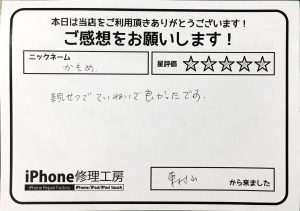 本日は当店をご利用頂きありがとうございます！
ご感想をお願いします！
ニックネーム
かもめ
星評価 ☆☆☆☆☆
親せつで ていねいで 良かったです。
iPhone修理工房
iPhone Repair Factory iPhone/iPad/iPod touch
東村山 から来ました